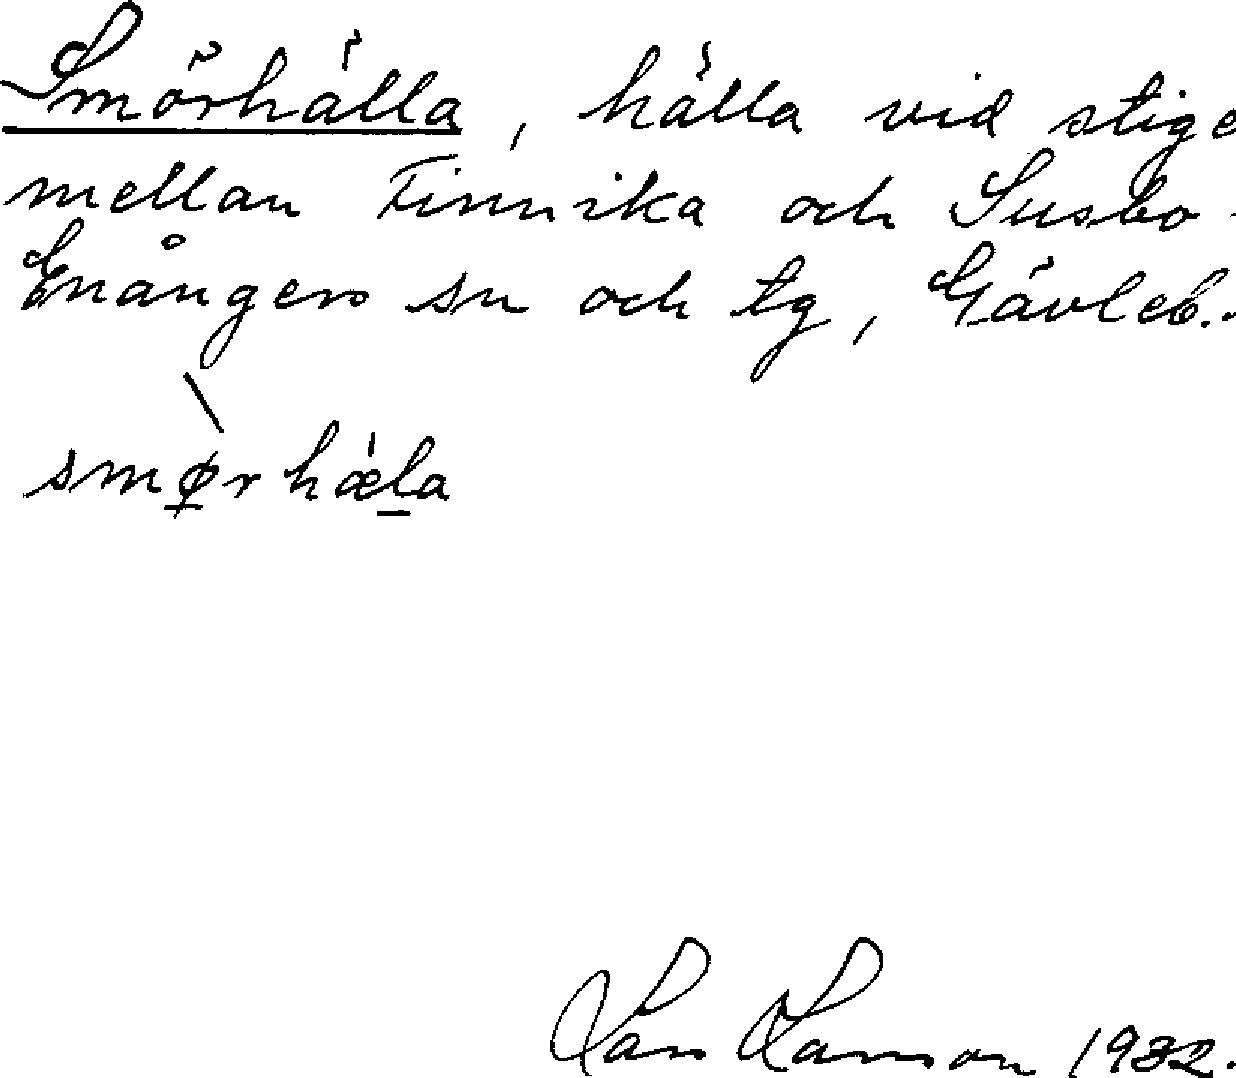 Smörhälla, hälla vid stige
mellan Finnvika och Susbo.
Enångers sn och tg, Gävleb..
smørhæla
Lars Larsson 1932.